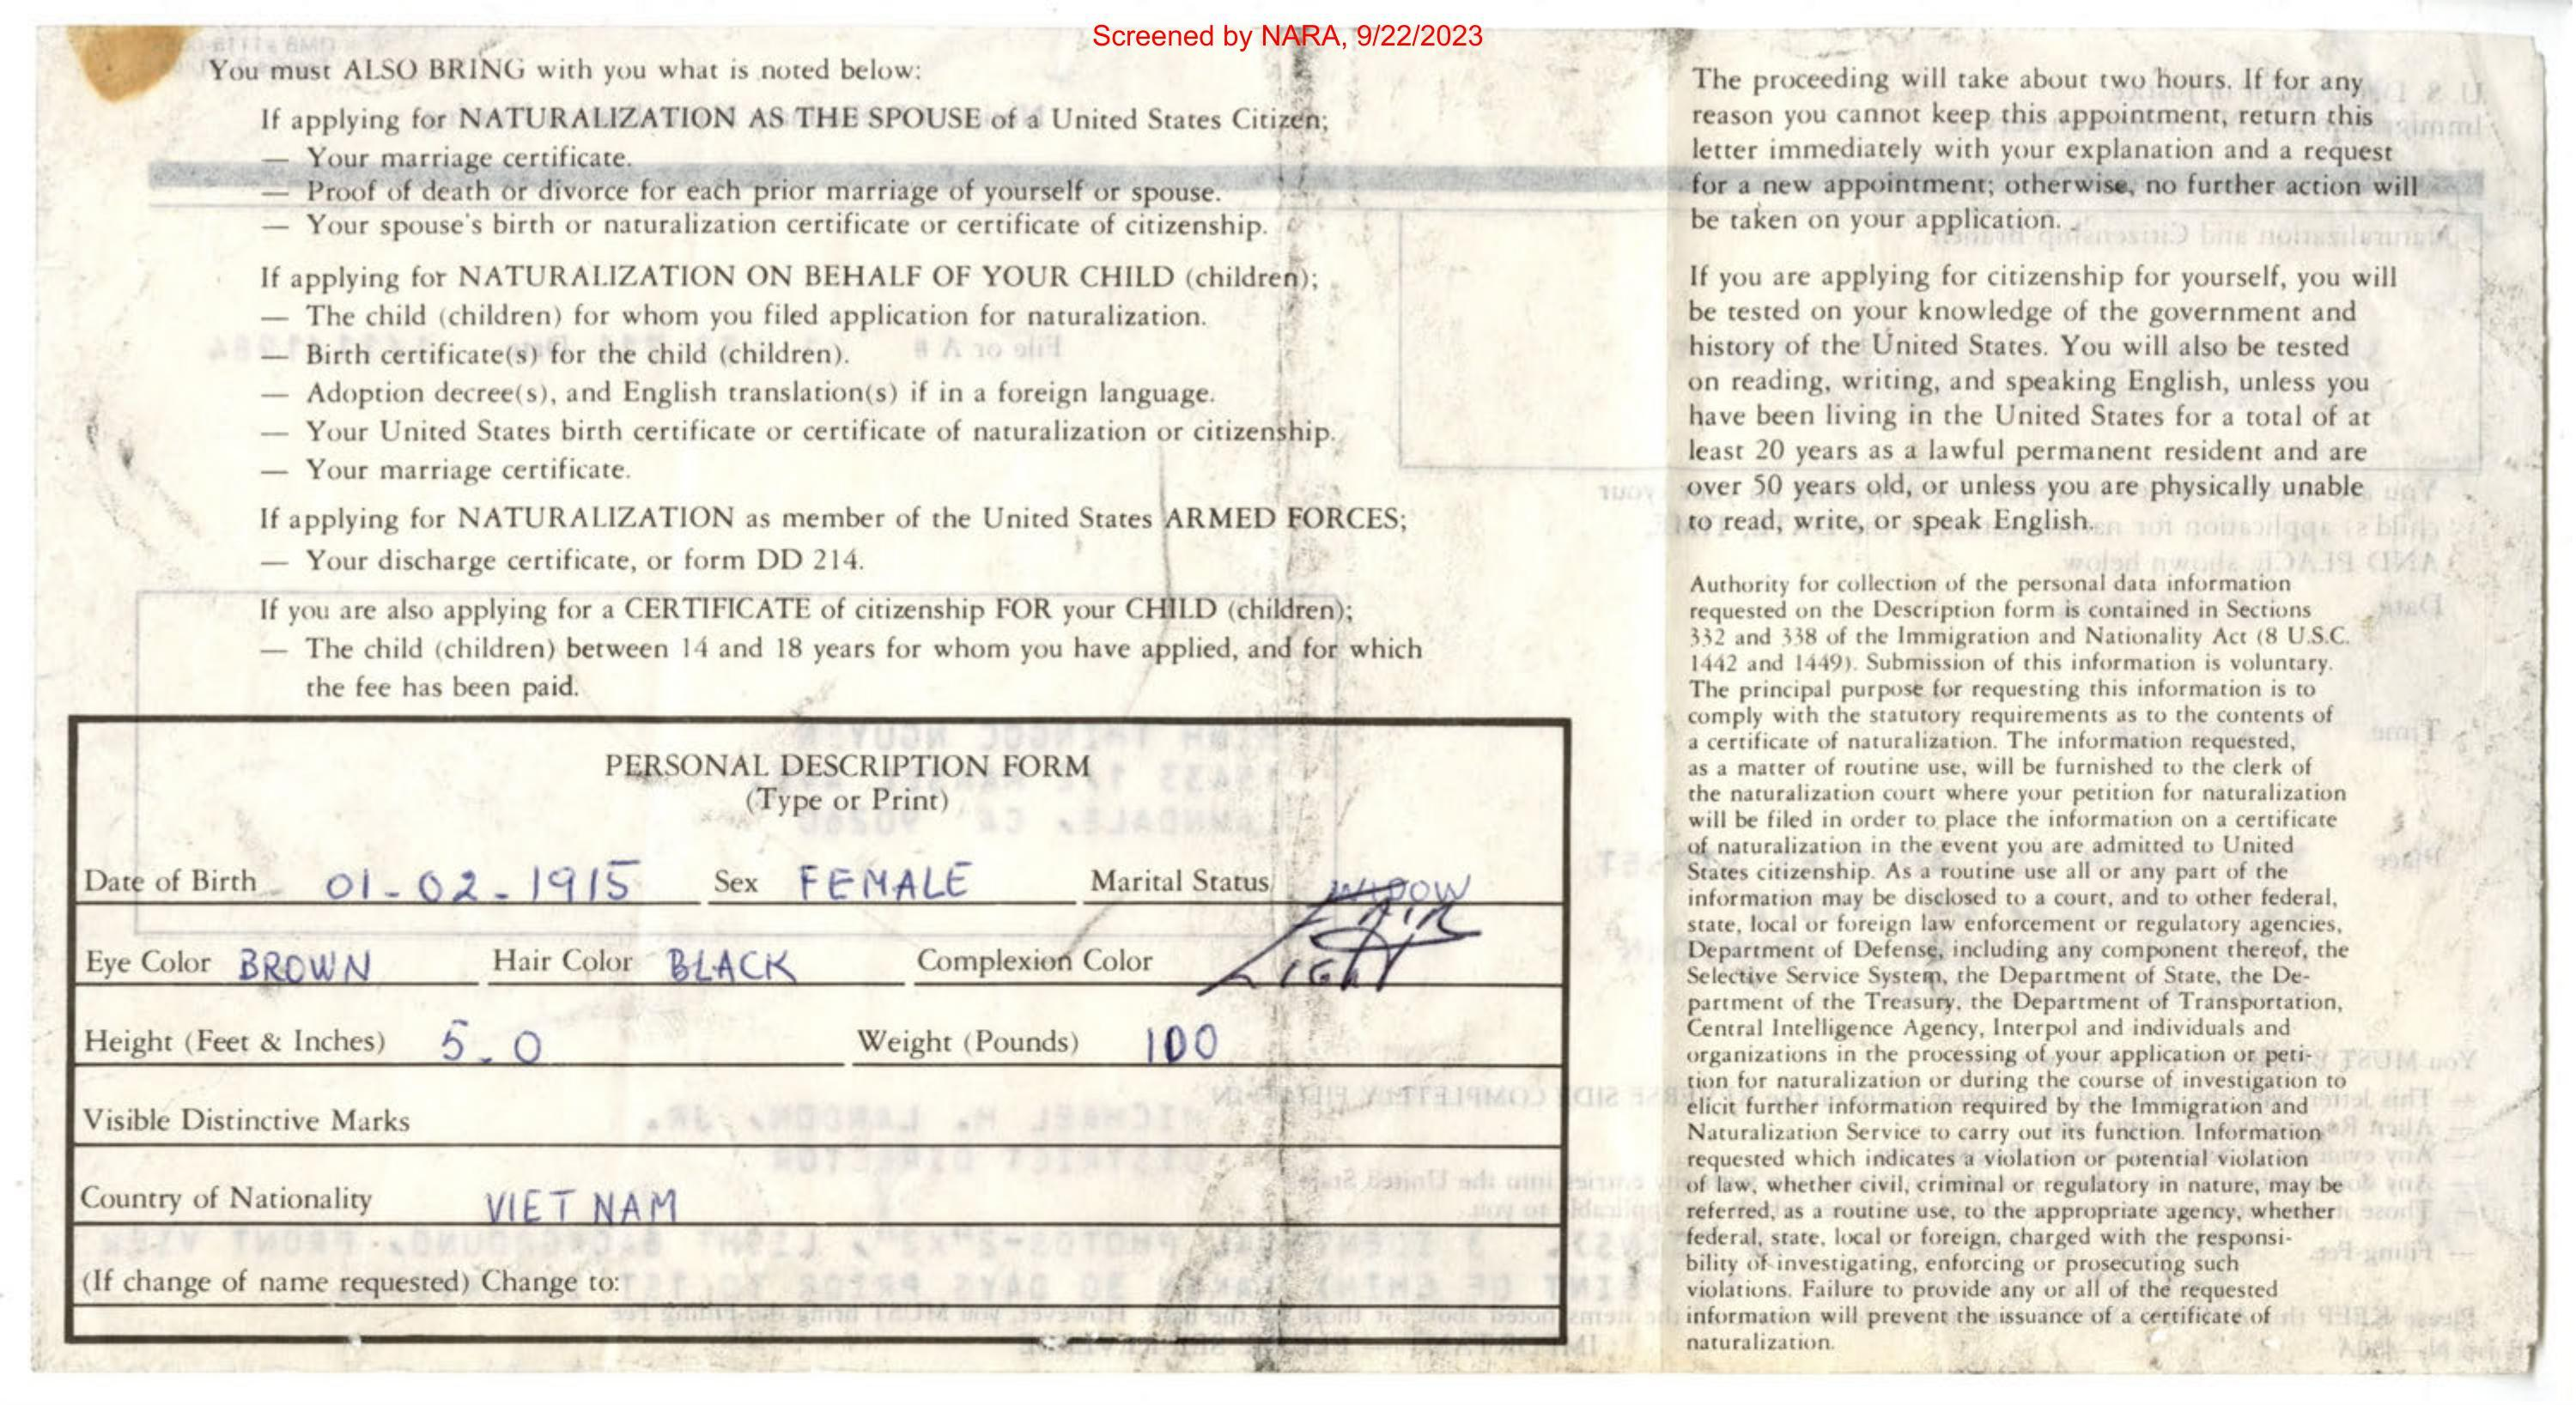 Screened by NARA, 9/22/2023
You must ALSO BRING with you what is noted below:
If applying for NATURALIZATION AS THE SPOUSE of a United States Citizen;
— Your marriage certificate.
— Proof of death or divorce for each prior marriage of yourself or spouse.
— Your spouse's birth or naturalization certificate or certificate of citizenship.
If applying for NATURALIZATION ON BEHALF OF YOUR CHILD (children);
— The child (children) for whom you filed application for naturalization.
— Birth certificate(s) for the child (children).
— Adoption decree(s), and English translation(s) if in a foreign language.
— Your United States birth certificate or certificate of naturalization or citizenship.
— Your marriage certificate.
If applying for NATURALIZATION as member of the United States ARMED FORCES;
— Your discharge certificate, or form DD 214.
If you are also applying for a CERTIFICATE of citizenship FOR your CHILD (children);
— The child (children) between 14 and 18 years for whom you have applied, and for which
the fee has been paid.
PERSONAL DESCRIPTION FORM
(Type or Print)
Date of Birth 01-02-1915 Sex FEMALE Marital Status WIDOW
Eye Color BROWN Hair Color BLACK Complexion Color LIGHT
Height (Feet & Inches) 5.0 Weight (Pounds) 100
Visible Distinctive Marks
Country of Nationality VIET NAM
(If change of name requested) Change to:
The proceeding will take about two hours. If for any
reason you cannot keep this appointment, return this
letter immediately with your explanation and a request
for a new appointment; otherwise, no further action will
be taken on your application.
If you are applying for citizenship for yourself, you will
be tested on your knowledge of the government and
history of the United States. You will also be tested
on reading, writing, and speaking English, unless you
have been living in the United States for a total of at
least 20 years as a lawful permanent resident and are
over 50 years old, or unless you are physically unable
to read, write, or speak English.
Authority for collection of the personal data information
requested on the Description form is contained in Sections
332 and 338 of the Immigration and Nationality Act (8 U.S.C.
1442 and 1449). Submission of this information is voluntary.
The principal purpose for requesting this information is to
comply with the statutory requirements as to the contents of
a certificate of naturalization. The information requested,
as a matter of routine use, will be furnished to the clerk of
the naturalization court where your petition for naturalization
will be filed in order to place the information on a certificate
of naturalization in the event you are admitted to United
States citizenship. As a routine use all or any part of the
information may be disclosed to a court, and to other federal,
state, local or foreign law enforcement or regulatory agencies,
Department of Defense, including any component thereof, the
Selective Service System, the Department of State, the De-
partment of the Treasury, the Department of Transportation,
Central Intelligence Agency, Interpol and individuals and
organizations in the processing of your application or peti-
tion for naturalization or during the course of investigation to
elicit further information required by the Immigration and
Naturalization Service to carry out its function. Information
requested which indicates a violation or potential violation
of law, whether civil, criminal or regulatory in nature, may be
referred, as a routine use, to the appropriate agency, whether
federal, state, local or foreign, charged with the responsi-
bility of investigating, enforcing or prosecuting such
violations. Failure to provide any or all of the requested
information will prevent the issuance of a certificate of
naturalization.